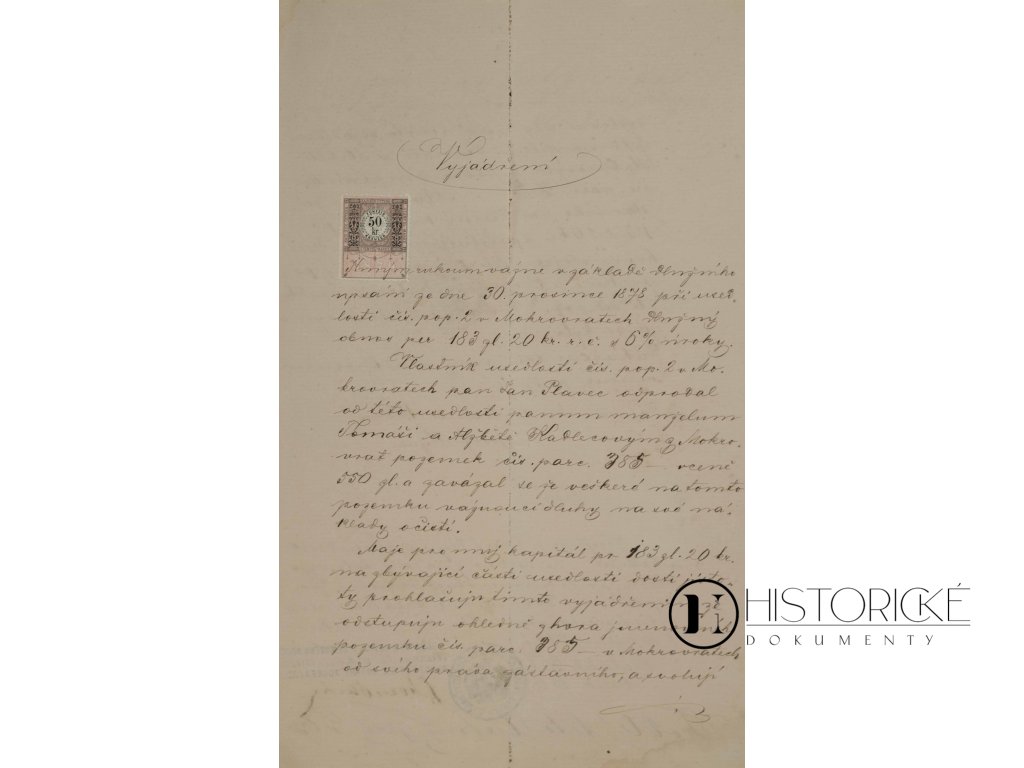 Vyjádření
50
kr
K mým rukoum vázne v základě dlužního
upsání ze dne 30. prosince 1878 při used-
losti čís. pop. 2 v Mokrovratech dlužný
obnos per 183 zl. 20 kr. r. č. s 6% úroky.
Vlastník usedlosti čís. pop. 2 v Mo-
krovratech pan Jan Plavec odprodal
od této usedlosti panum manželum
Tomáši a Alžbětě Kadlecovým z Mokro-
vrat pozemek čís. parc. 385 v ceně
550 zl. a zavázal se je veškeré na tomto
pozemku váznoucí dluhy na své ná-
klady očistí.
Maje pro muj kapitál pr 183 zl. 20 kr.
na zbývající části usedlosti dosti jisto-
ty prohlašuju tímto vyjádřením že
odstupuju ohledně zhora jmenovaného
pozemku čís. parc. 385 v Mokrovratech
od svého práva zástavního, a svoluji
HISTORICKÉ
DOKUMENTY